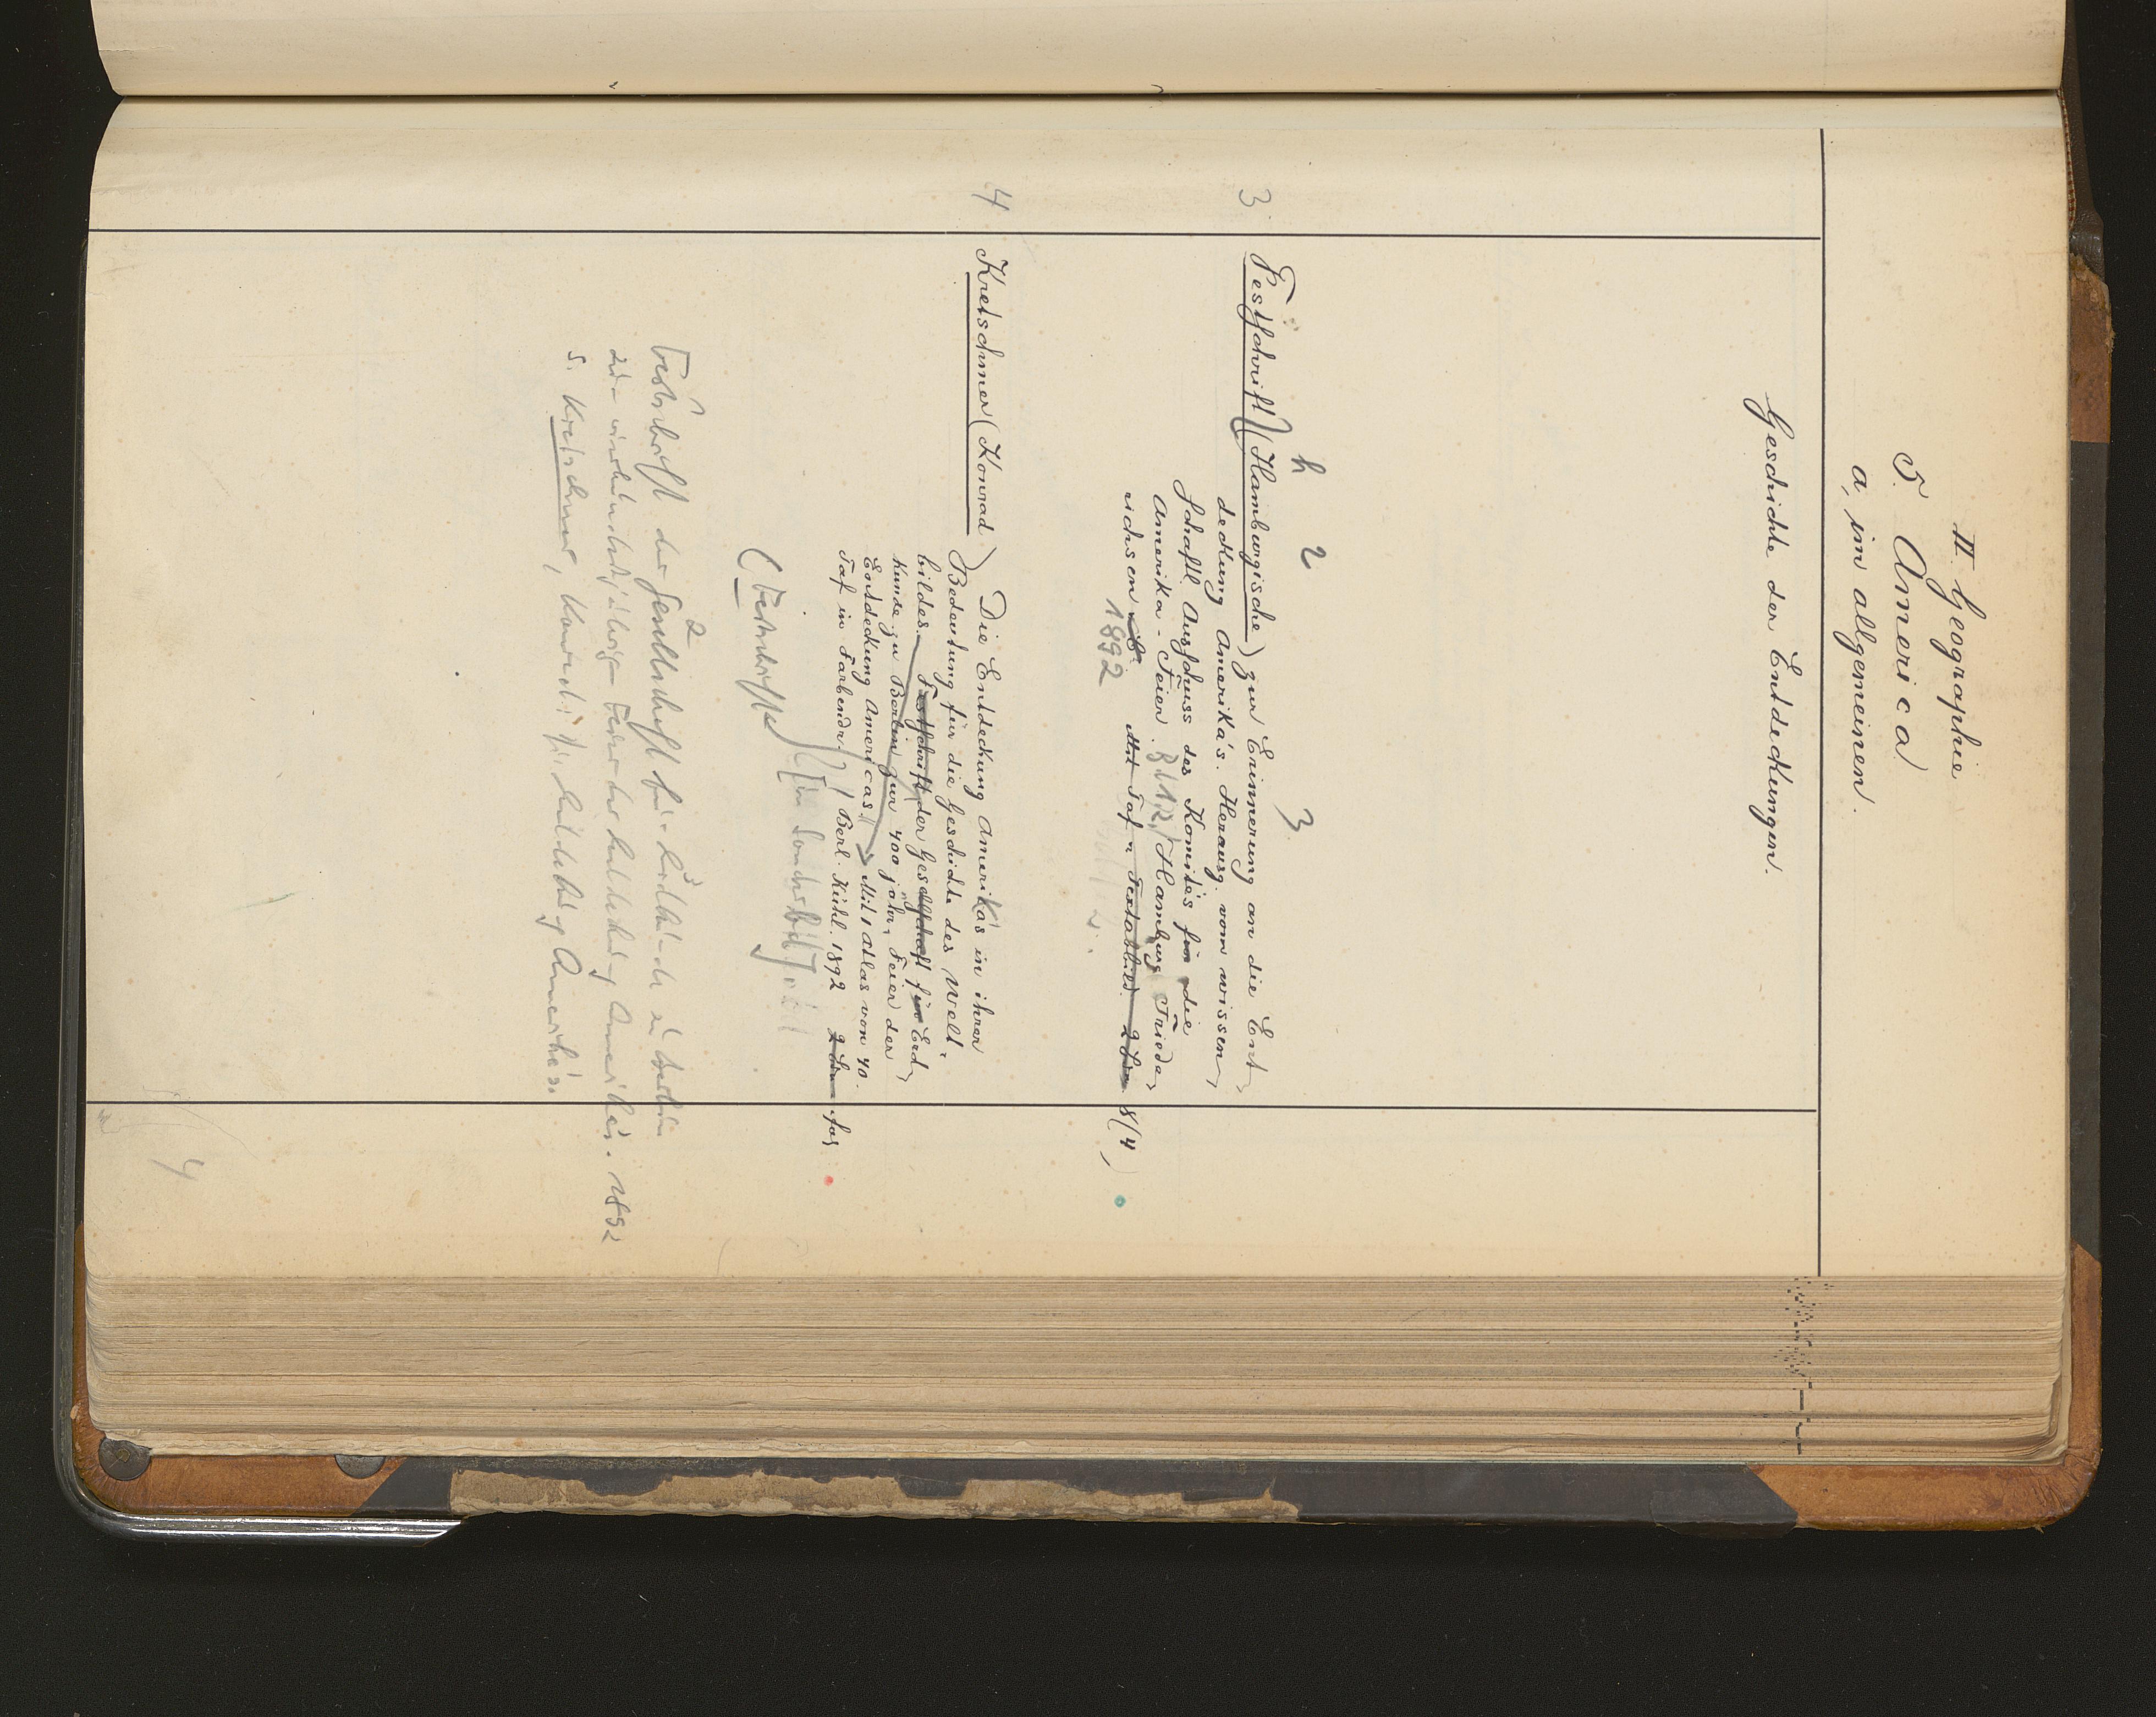 II. Geographie
5. America
a, im allgemeinen.
Geschichte der Entdeckungen.
h 2 3
3. Festschrift (Hamburgische) zur Erinnerung an die Ent-
deckung Amerika's. Herausg. vom wissen-
schaftl. Ausschuss des Komités für die
Amerika-Feier. Hamburg Friede-
richsen
Mit Taf. u. Textabbild. 2 8/4
1892
4 Kretschmer (Konrad) Die Entdeckung Amerika's in ihrer
Bedeutung für die Geschichte des Welt-
bildes. Festschrift der Gesellschaft für Erd-
kunde zu Berlin zur 400 jähr. Feier der
Entdeckung Americas. Mit 1 Atlas von 40.
Taf in Farbendr. Berl. Kühl. 1892 2 fol
(Festschrift
2 3
Festschrift der Gesellschaft für Erdkunde zu Berlin
zur vierhundertjährigen Feier der Entdeckung Amerika's. 1892
s. Kretschmer, Konrad: Die Entdeckung Amerika's.
4